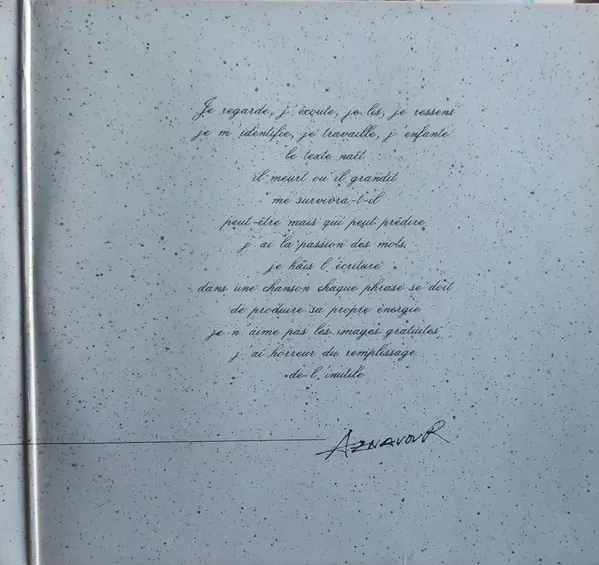 Je regarde, j'écoute, je lis, je ressens
je m'identifie, je travaille, j'enfante
le texte naît
il meurt ou il grandit
me survivra-t-il
peut-être mais qui peut prédire
j'ai la passion des mots
je hais l'écriture
dans une chanson chaque phrase se doit
de produire sa propre énergie
je n'aime pas les images gratuites
j'ai horreur du remplissage
de l'inutile
AZNAVOUR